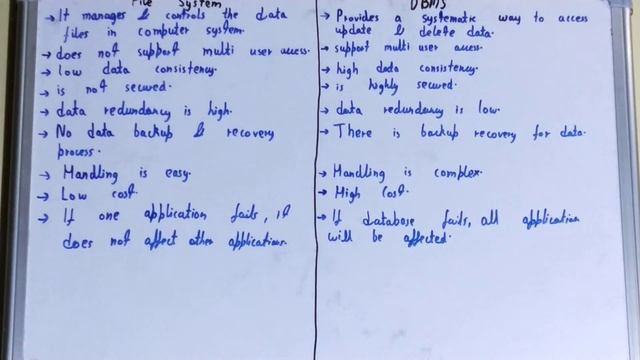 File System
→ It manages & controls the data
files in computer system.
→ does not support multi user access.
→ low data consistency.
→ is not secured.
→ data redundancy is high.
→ No data backup & recovery
process.
→ Handling is easy.
→ Low cost.
→ If one application fails, it
does not affect other application.
DBMS
→ Provides a systematic way to access
update & delete data.
→ support multi user access.
→ high data consistency.
→ is highly secured.
→ data redundancy is low.
→ There is backup recovery for data.
→ Handling is complex.
→ High Cost.
→ If database fails, all application
will be affected.